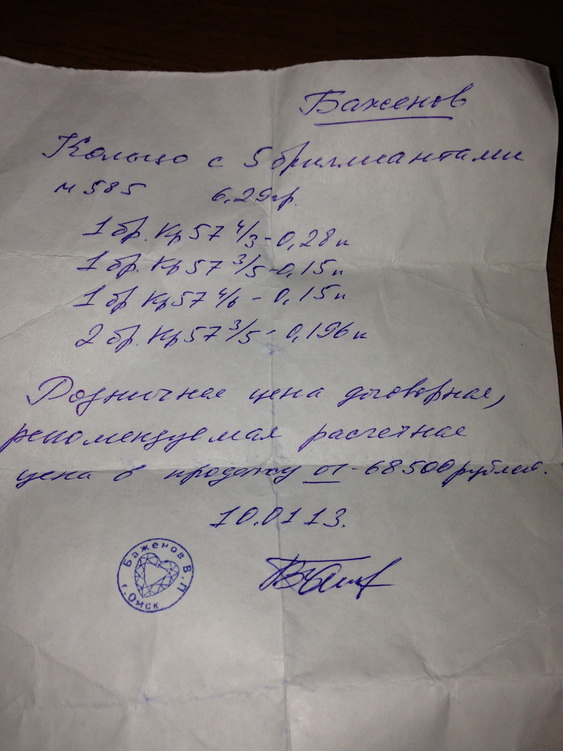 Баженов
Кольцо с 5 бриллиантами
м 585 6,29гр.
1 бр. Кр57 4/3-0,28к
1 бр. Кр57 3/5-0,15к
1 бр Кр57 4/6 - 0,15к
2 бр. Кр57 3/5 - 0,196к
Розничная цена договорная,
рекомендуемая расчетная
цена в продажу от - 68500 рублей.
10.01 13.
Баженов В.П
г. Омск